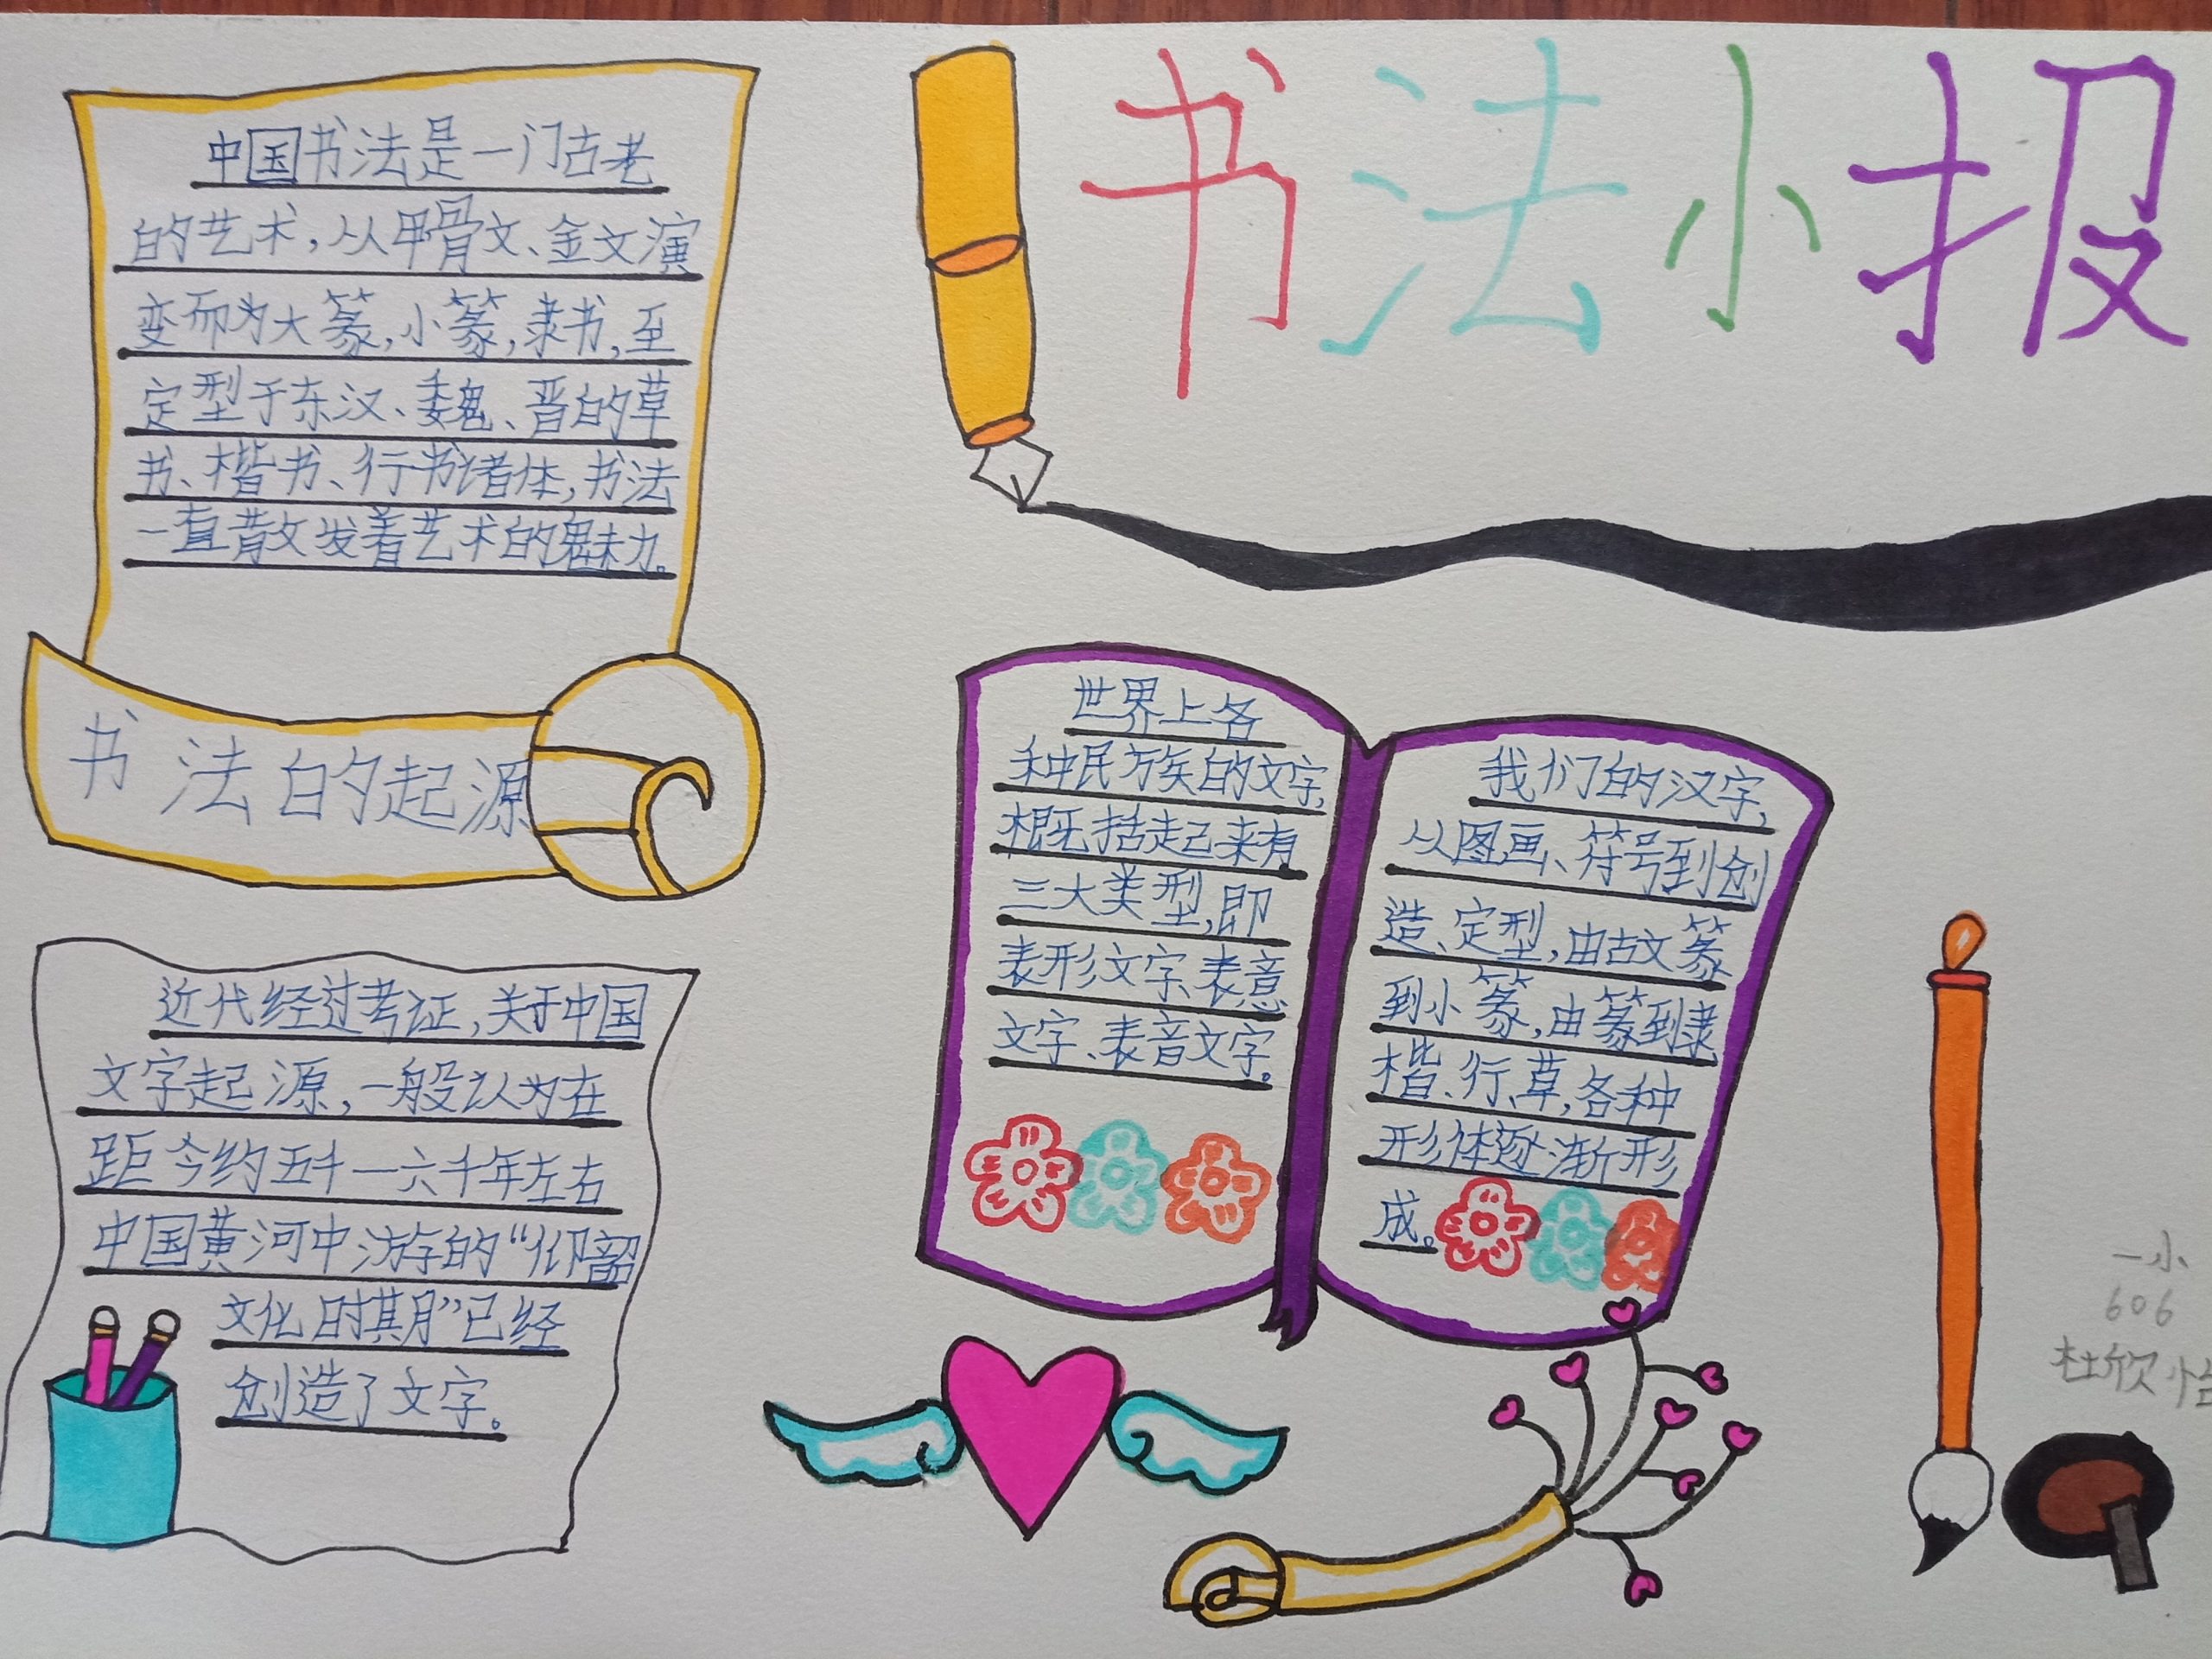 书法小报
中国书法是一门古老
的艺术,从甲骨文、金文演
变而为大篆,小篆,隶书,至
定型于东汉、魏、晋的草
书、楷书、行书诸体,书法
一直散发着艺术的魅力。
书法的起源
近代经过考证,关于中国
文字起源,一般认为在
距今约五千一六千年左右
中国黄河中游的“仰韶
文化时期”已经
创造了文字。
世界上各
种民族的文字,
概括起来有
三大类型,即
表形文字、表意
文字、表音文字。
我们的汉字,
从图画、符号到创
造、定型,由古文篆
到小篆,由篆到隶
楷、行、草,各种
形体逐渐形
成。
一小
606
杜欣怡